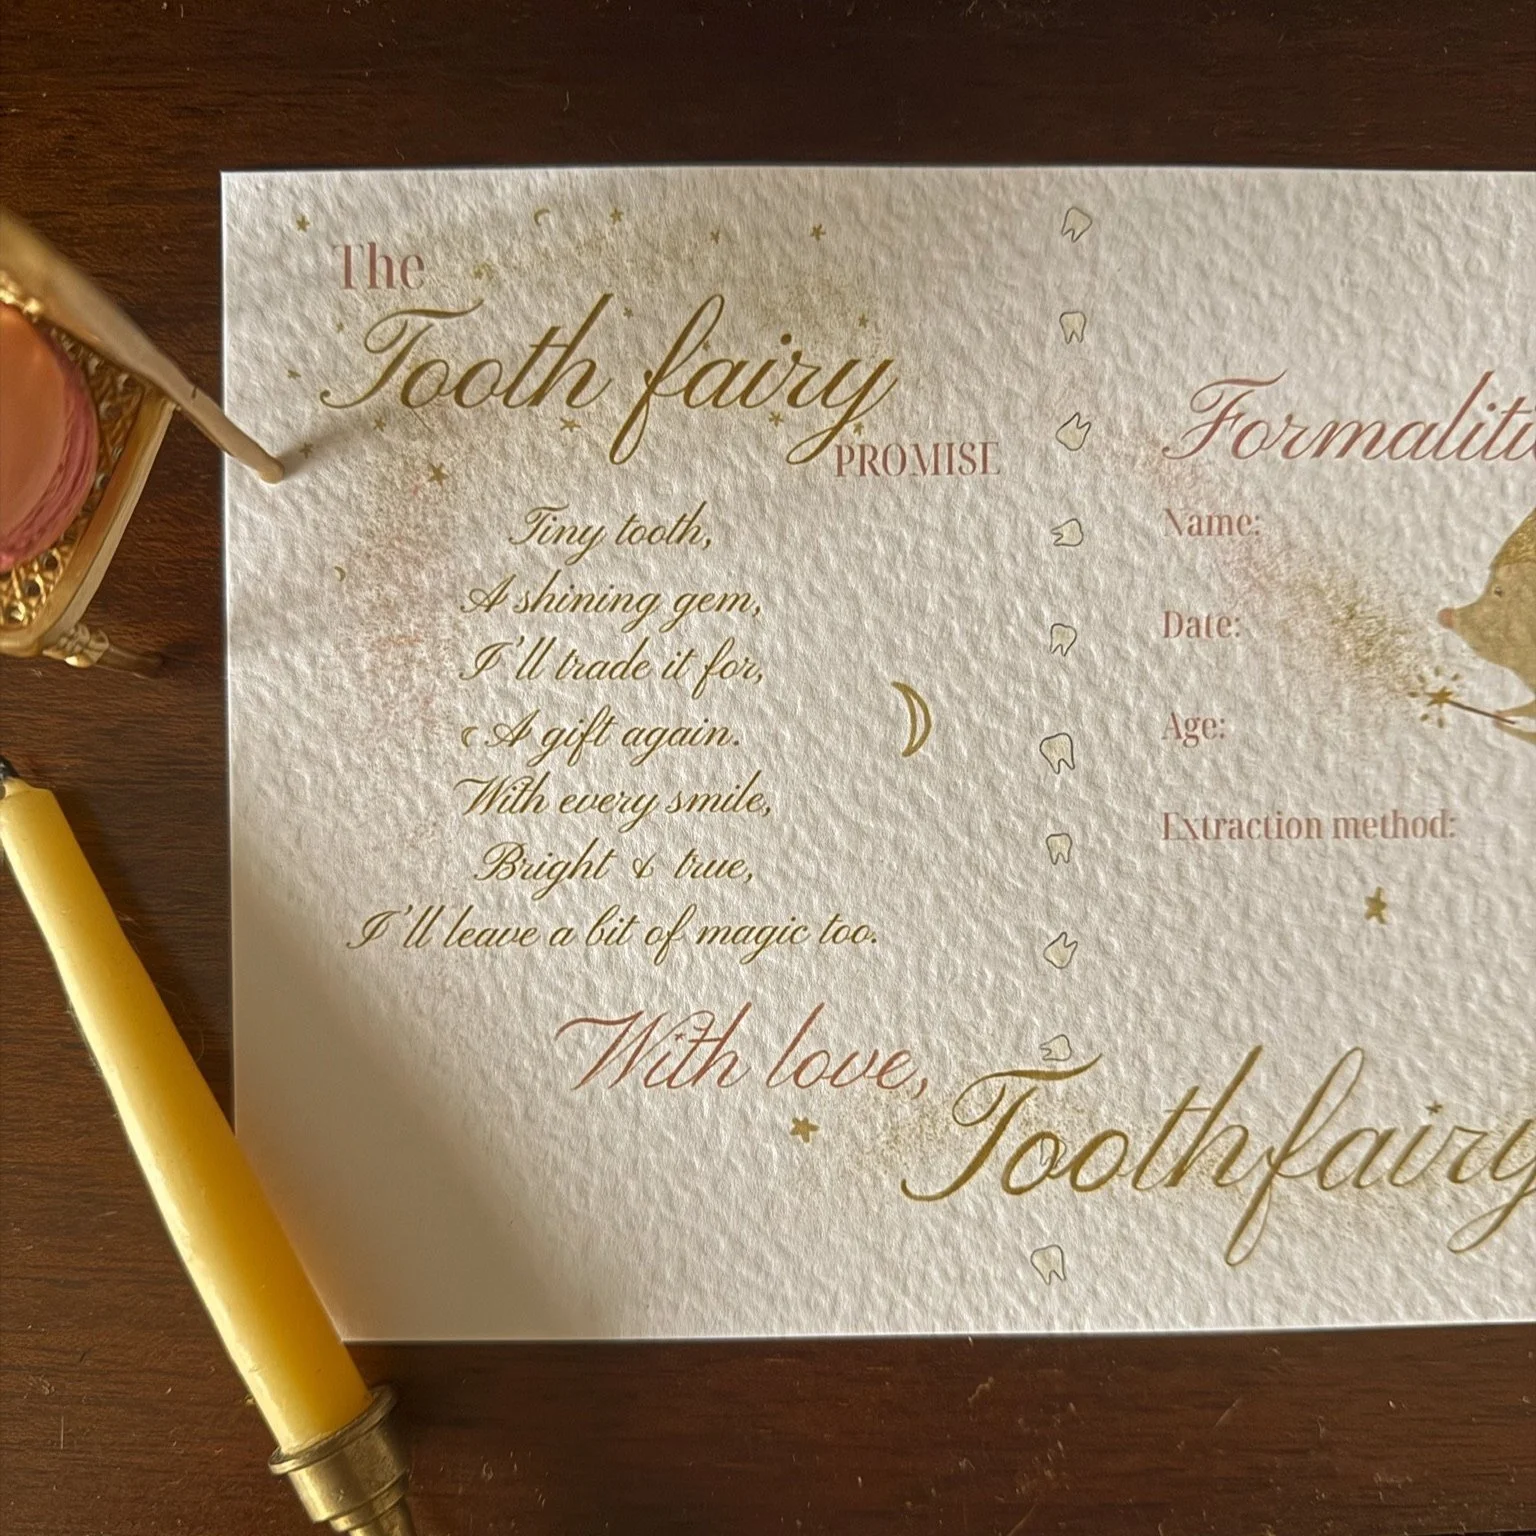 The
Tooth fairy
PROMISE
Tiny tooth,
A shining gem,
I'll trade it for,
A gift again.
With every smile,
Bright & true,
I'll leave a bit of magic too.
With love,
Toothfairy
Name:
Date:
Age:
Extraction method: